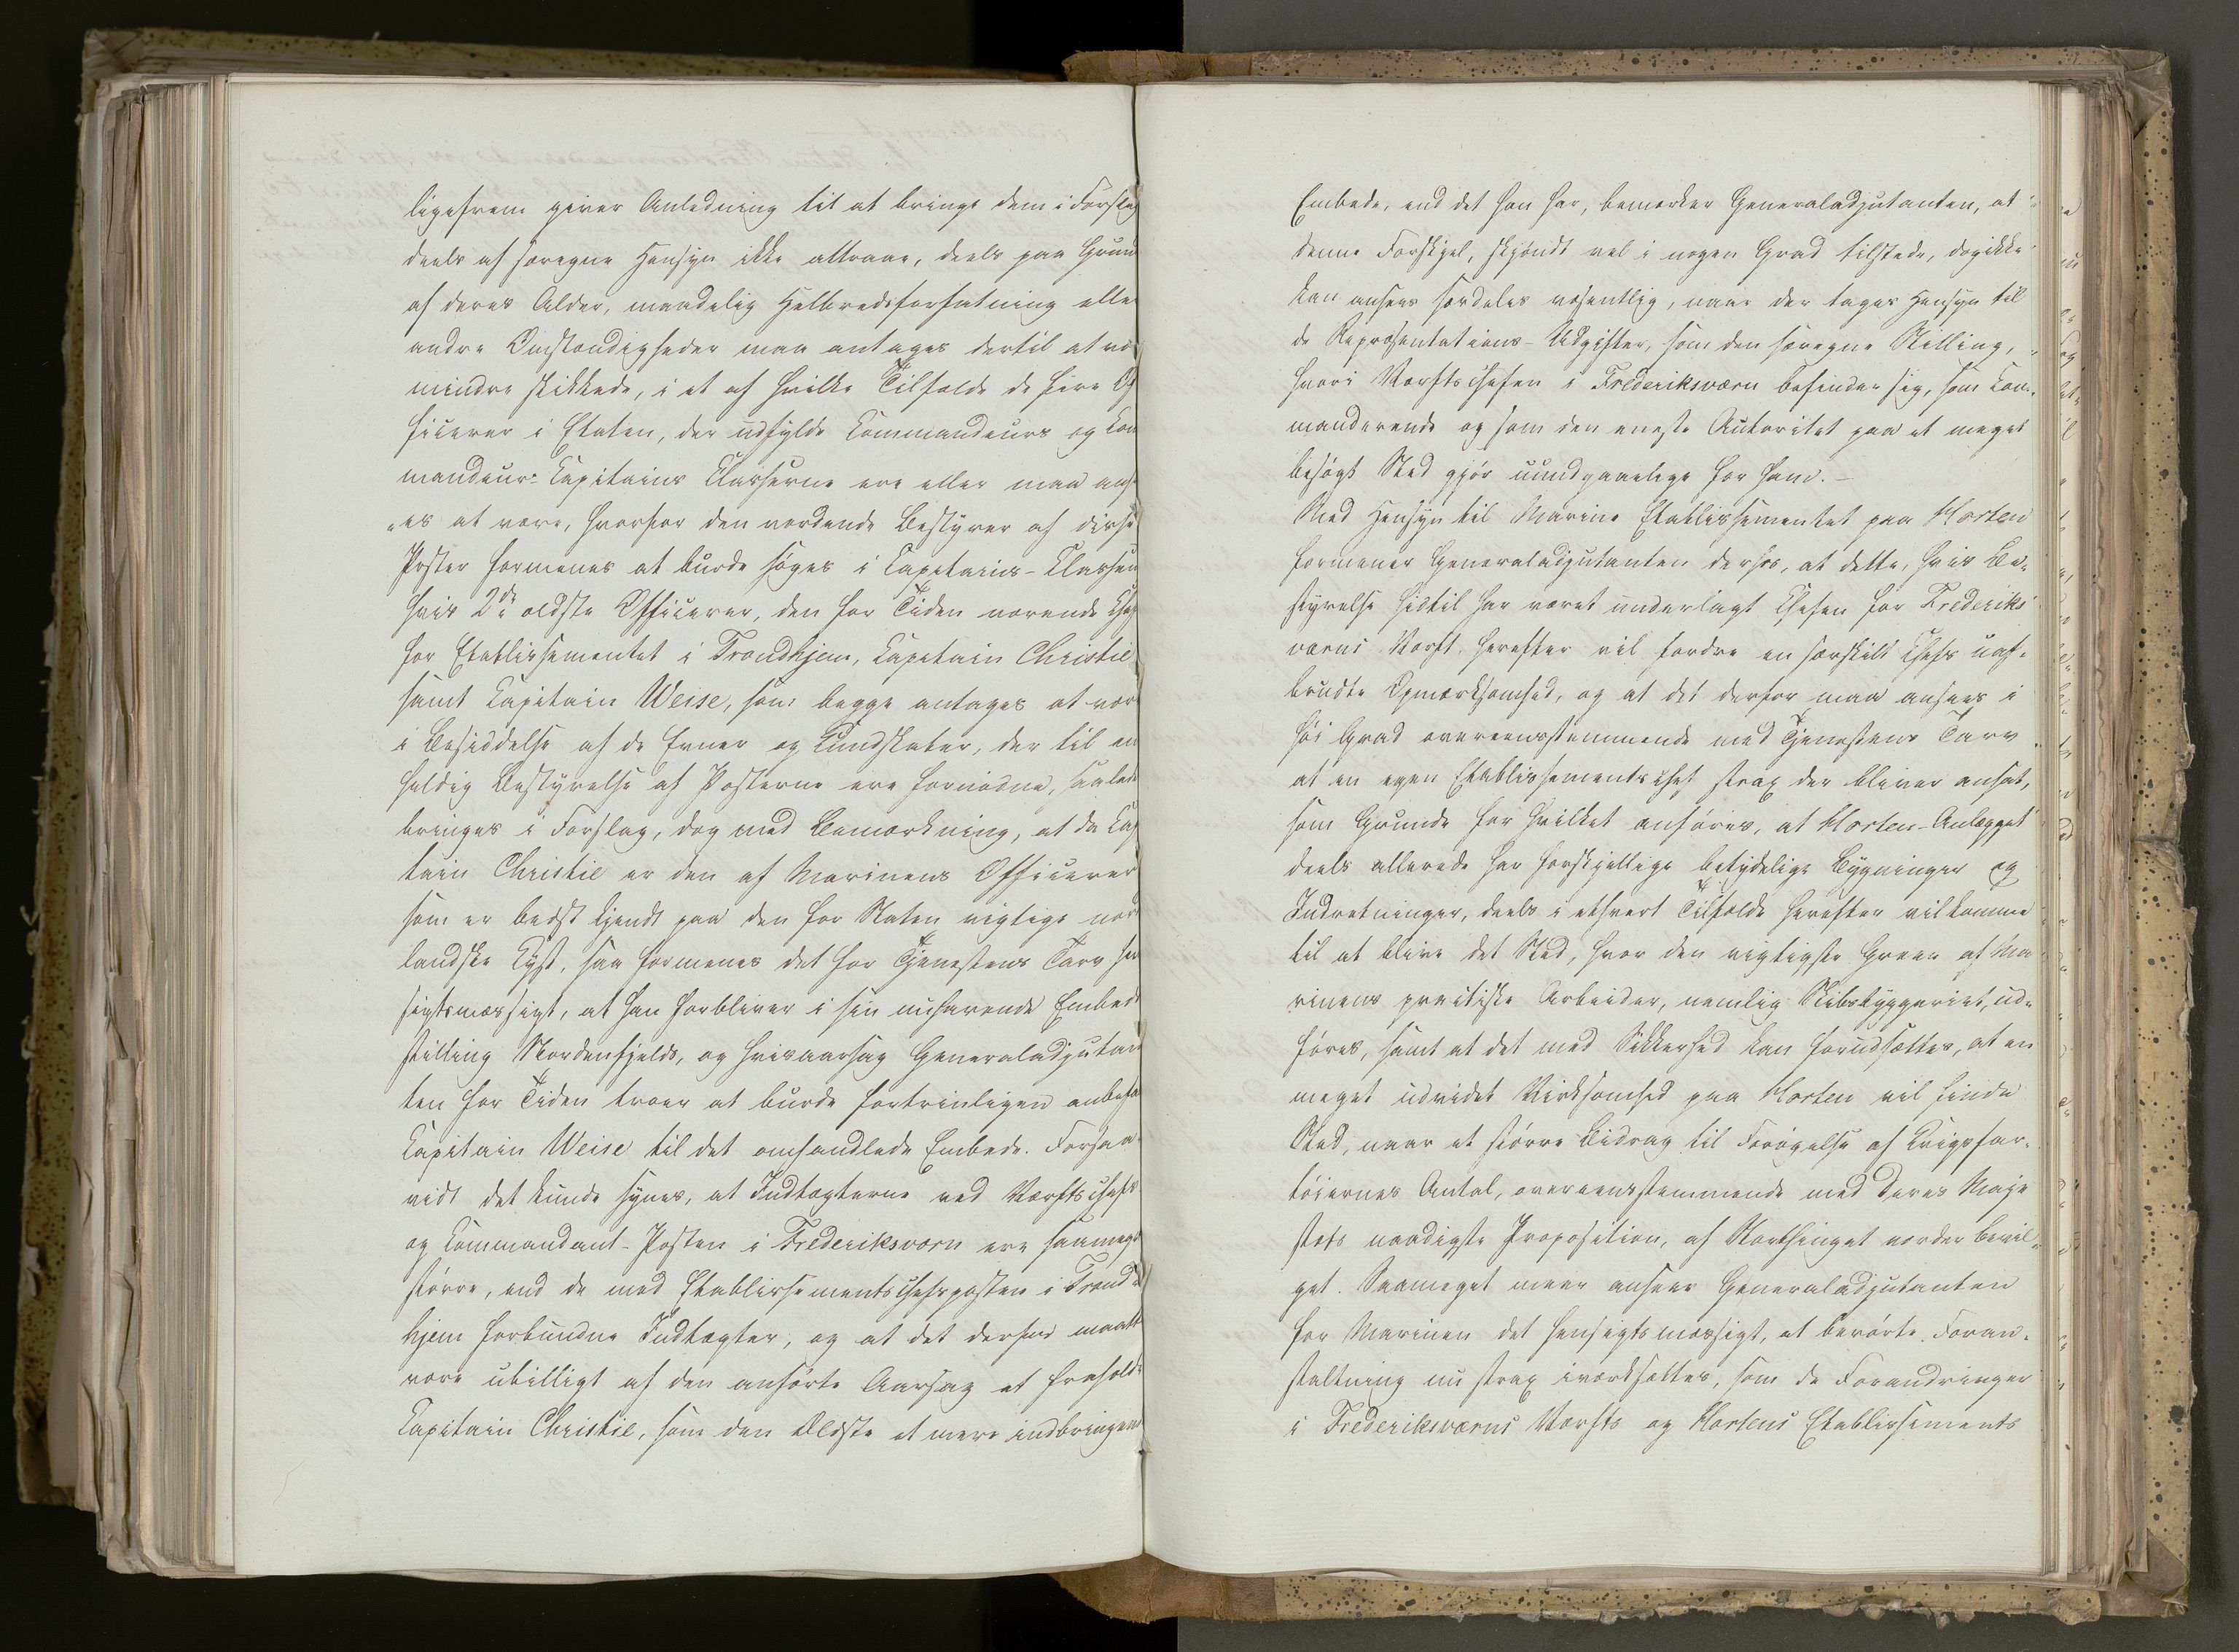 ligefrem giver Anledning til at bringe dem i Forslag
deels af særegne Hensyn ikke attraae, deels paa Grund
af deres Alder, maadelig Helbredsforfatning elle
andre Omstændigheder maa antages dertil at væ
mindre skikkede, i et af hvilke Tilfælde de fire Of
ficerer i Etaten, der udfylde Commandeurs og Com
mandeur-Capitains Classerne ere eller maa anse
"es at være, hvorfor den vordende Bestyrer af disse
Poster formenes at burde søges i Capitains-Classen
hvis 2de ældste Officerer, den for Tiden værende Chef
for Etablissementet i Trondhjem, Capitain Christie
samt Capitain Weise, som begge antages at vær
i Besiddelse af de Evner og Kundskaber, der til en
heldig Bestyrelse af Posterne ere fornødne, saaled
bringes i Forslag, dog med Bemærkning, at da Cap
tain Christie er den af Marinens Officerer
som er bedst kjendt paa den for Staten vigtige nord
landske Kyst, saa formenes det for Tjenestens Tarv hen
sigtsmæssigt, at han forbliver i sin nuhavende Embeds
stilling Nordenfjelds, og hvisaarsag Generaladjutan
ten for Tiden troer at burde fortrinligen anbefa
Capitain Weise til det omhandlede Embede. Forsaa
vidt det kunde synes, at Indtægterne ved Værftschefs
og Commandant-Posten i Frederiksværn ere saameget
større, end de med Etablissementschefsposten i Trond
hjem forbundne Indtægter, og at det derfor maatte
være ubilligt af den anførte Aarsag at forholde
Capitain Christie, som den Ældste et mere indbringend
Embede, end det han har, bemærker Generaladjutanten, at
denne Forskjel, skjøndt vel i nogen Grad tilstede, dog ikke
kan ansees særdeles væsentlig, naar der tages Hensyn til
de Repræsentations-Udgifter, som den særegne Stilling,
hvori Værftschefen i Frederiksværn befinder sig, som Com-
manderende og som den eneste Autoritet paa et meget
besøgt Sted gjør uundgaaelige for ham. -
Med Hensyn til Marine Etablissementet paa Horten
formener Generaladjutanten derhos, at dette, hvis Be-
styrelse hidtil har været underlagt Chefen for Frederiks
værns Værft, herefter vil fordre en særskilt Chefs uaf-
brudte Opmærksomhed, og at det derfor maa ansees i
høi Grad overeensstemmende med Tjenestens Tarv
at en egen Etablissementschef strax der bliver ansat,
som Grunde for hvilket anføres, at Horten-Anlægget
deels allerede har forskjellige betydelige Bygninger og
Indretninger, deels i ethvert Tilfælde herefter vil komme
til at blive det Sted, hvor den vigtigste Green af Ma
rinens practiske Arbeider, nemlig Skibsbyggeriet, ud-
føres, samt at det med Sikkerhed kan forudsættes, at en
meget udvidet Virksomhed paa Horten vil finde
Sted, naar et større Bidrag til Forøgelse af Krigsfar-
tøiernes Antal, overeensstemmende med Deres Maje
stæts naadigste Proposition, af Storthinget vorder bevil-
get. Saameget meer anseer Generaladjutanten
for Marinen det hensigtsmæssigt, at berørte Foran-
staltning nu strax iværksættes, som de Forandringer
i Frederiksværns Værfts og Hortens Etablissements